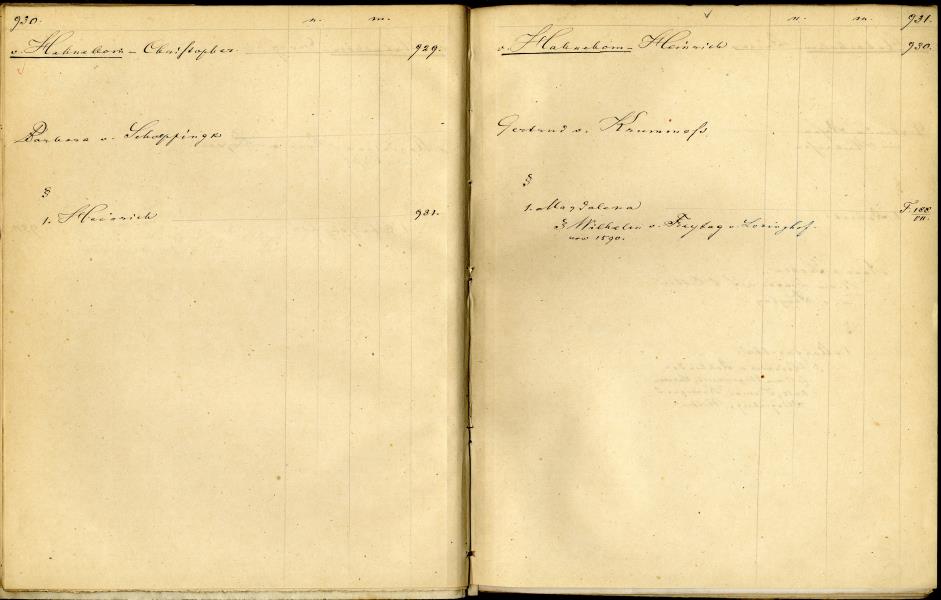 930. n. m.
v. Hahnebom - Christopher. 929.
Barbara v. Schoeppingk
§
1. Heinrich 931.
n. m. 931.
v. Hahnebom - Heinrich 930.
Gertrud v. Krummess
§
1. Magdalena F. 188
VII.
§ Wilhelm v. Freytag v. Loringhof.
vor 1590.